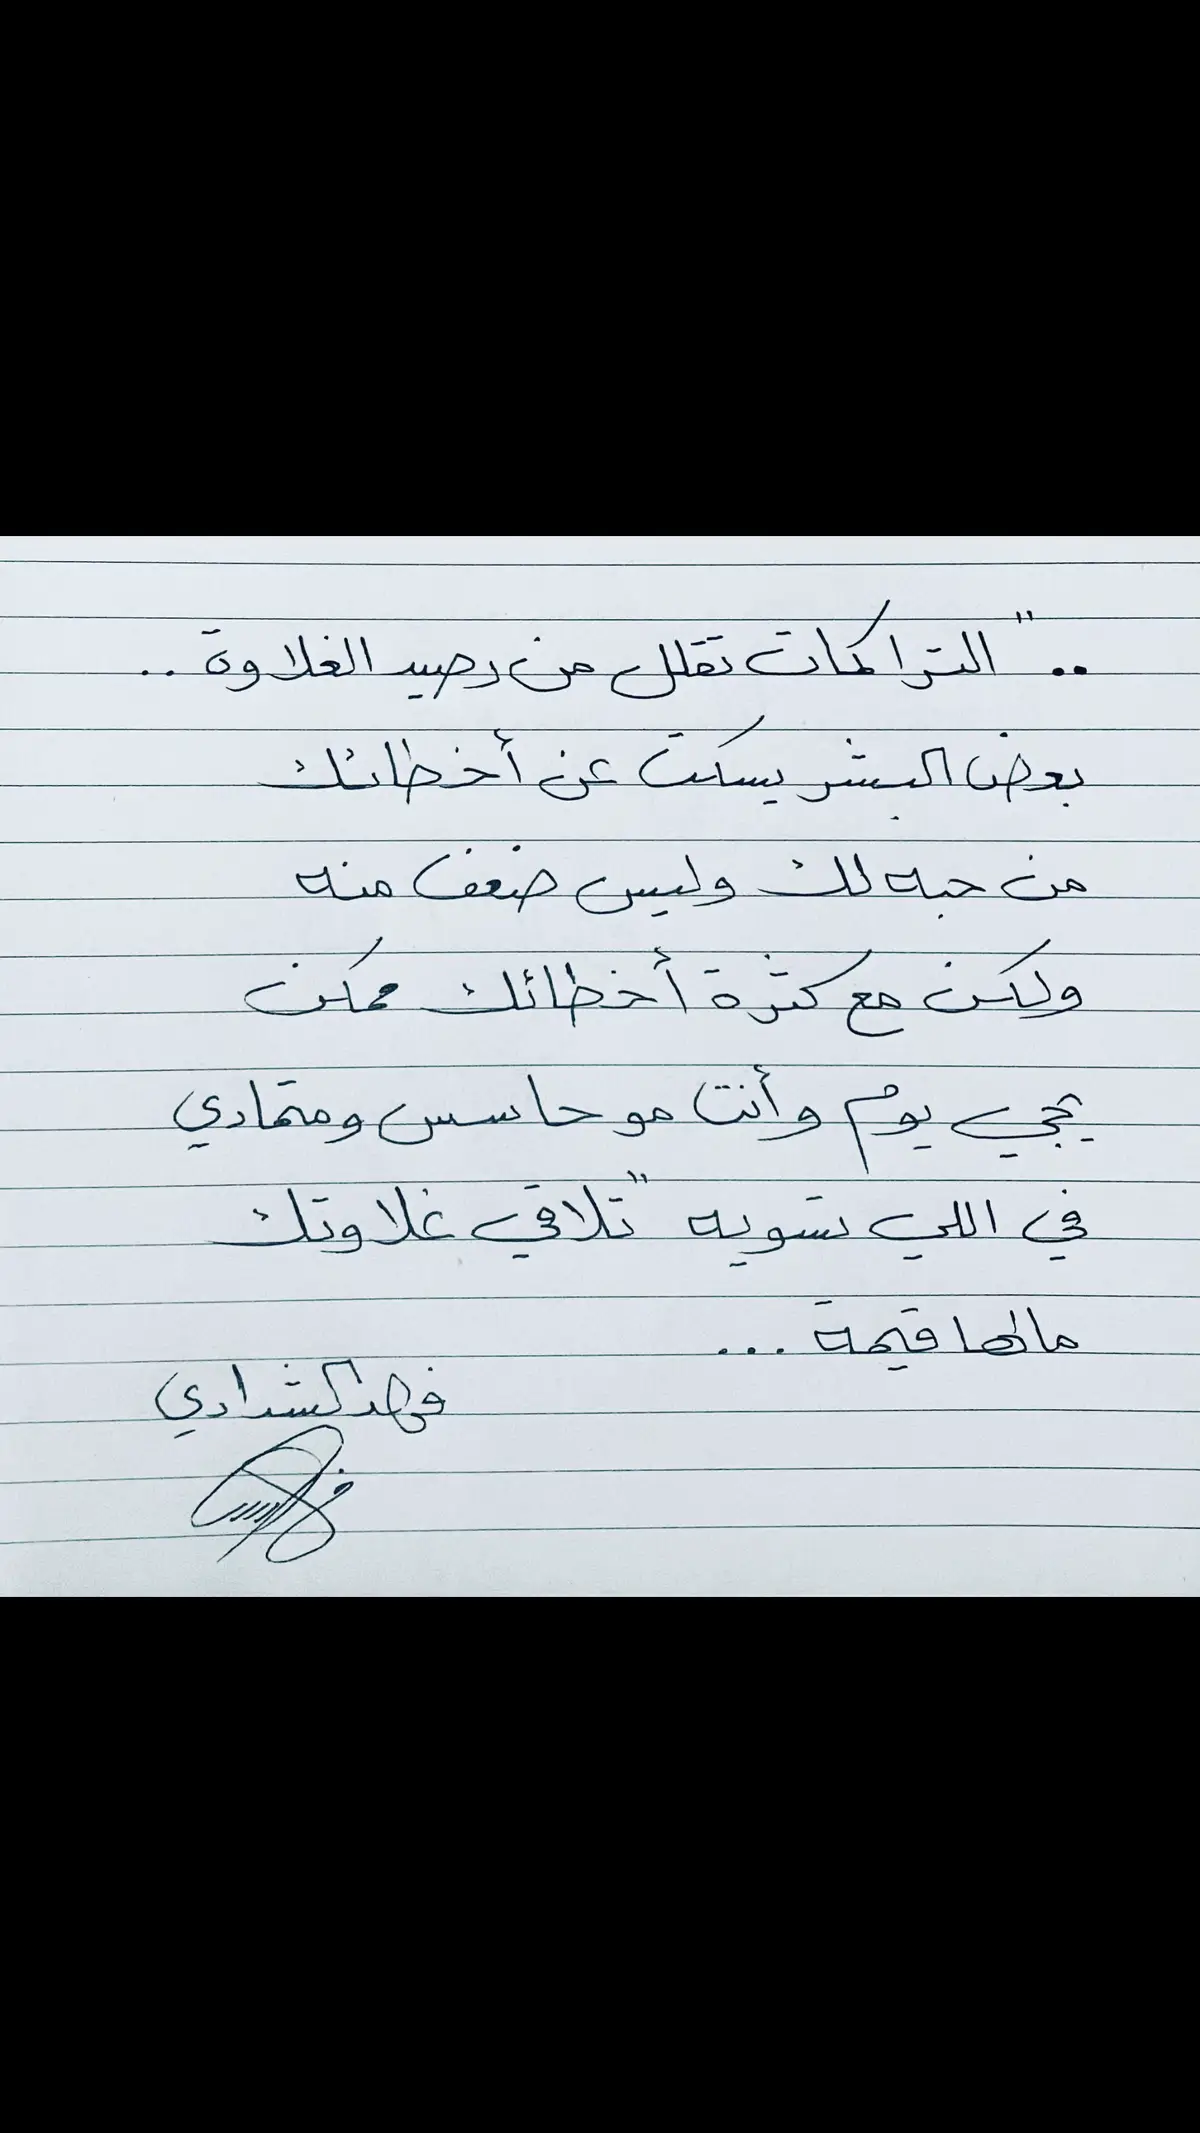 .. " التراكمات تقلل من رصيد الغلاوة ..
بعض البشر يسكت عن أخطائك
من حبه لك وليس ضعف منه
ولكن مع كثرة أخطائك ممكن
يجي يوم وأنت مو حاسس ومتمادي
في اللي تسويه " تلاقي غلاوتك
مالها قيمة ...
فهد الشدادي